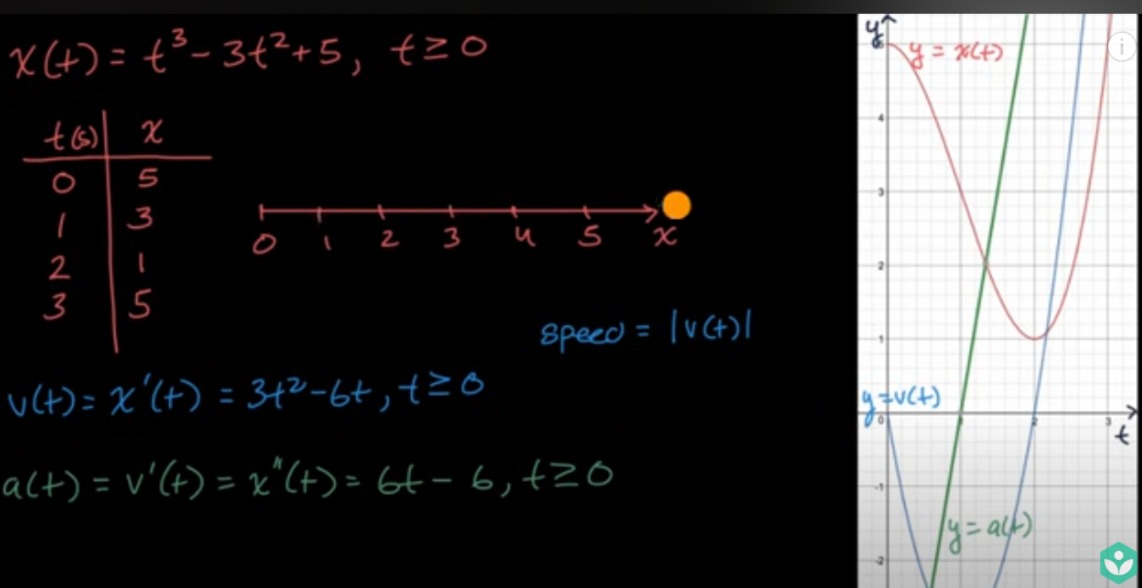 x(t) = t³ - 3t² + 5, t ≥ 0
t(s) x
0 5
1 3
2 1
3 5
0 1 2 3 4 5 x
speed = |v(t)|
v(t) = x'(t) = 3t² - 6t, t ≥ 0
a(t) = v'(t) = x"(t) = 6t - 6, t ≥ 0
y
5
y = x(t)
i
4
3
2
1
y = v(t)
0 1 2 3
t
-1
y = a(t)
-2